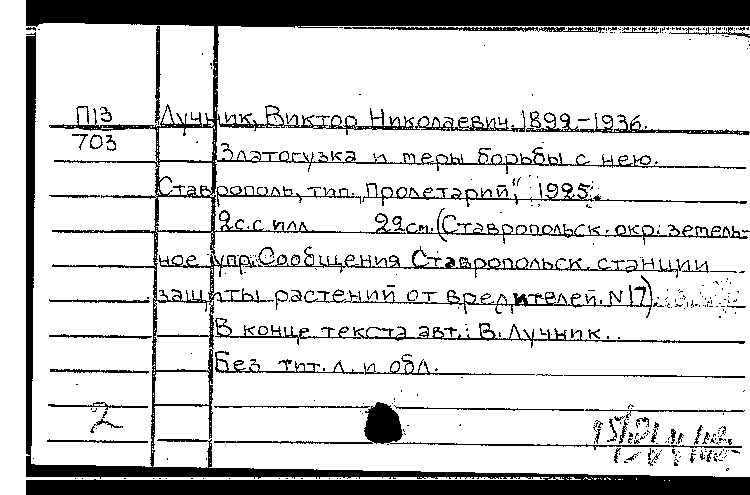 П13
703
Лучник, Виктор Николаевич. 1899-1936.
Златогузка и меры борьбы с нею.
Ставрополь, тип. „Пролетарий", 1925.
2с. с илл. 22см. (Ставропольск. окр. земель-
ное упр. Сообщения Ставропольск. станции
защиты растений от вредителей. N17).
В конце текста авт.: В. Лучник.
Без тит. л. и обл.
2